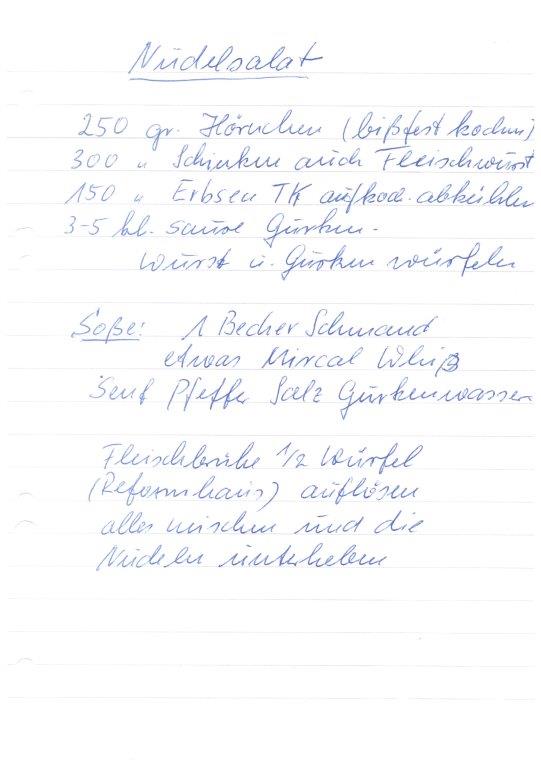 Nudelsalat
250 gr. Hörnchen (bißfest kochen)
300 " Schinken auch Fleischwurst
150 " Erbsen TK aufkoch. abkühlen
3-5 kl. saure Gurken -
Wurst u. Gurken würfeln
Soße: 1 Becher Schmand
etwas Mircal Whiß
Senf Pfeffer Salz Gurkenwasser
Fleischbrühe 1/2 Würfel
(Reformhaus) auflösen
alles mischen und die
Nudeln unterheben